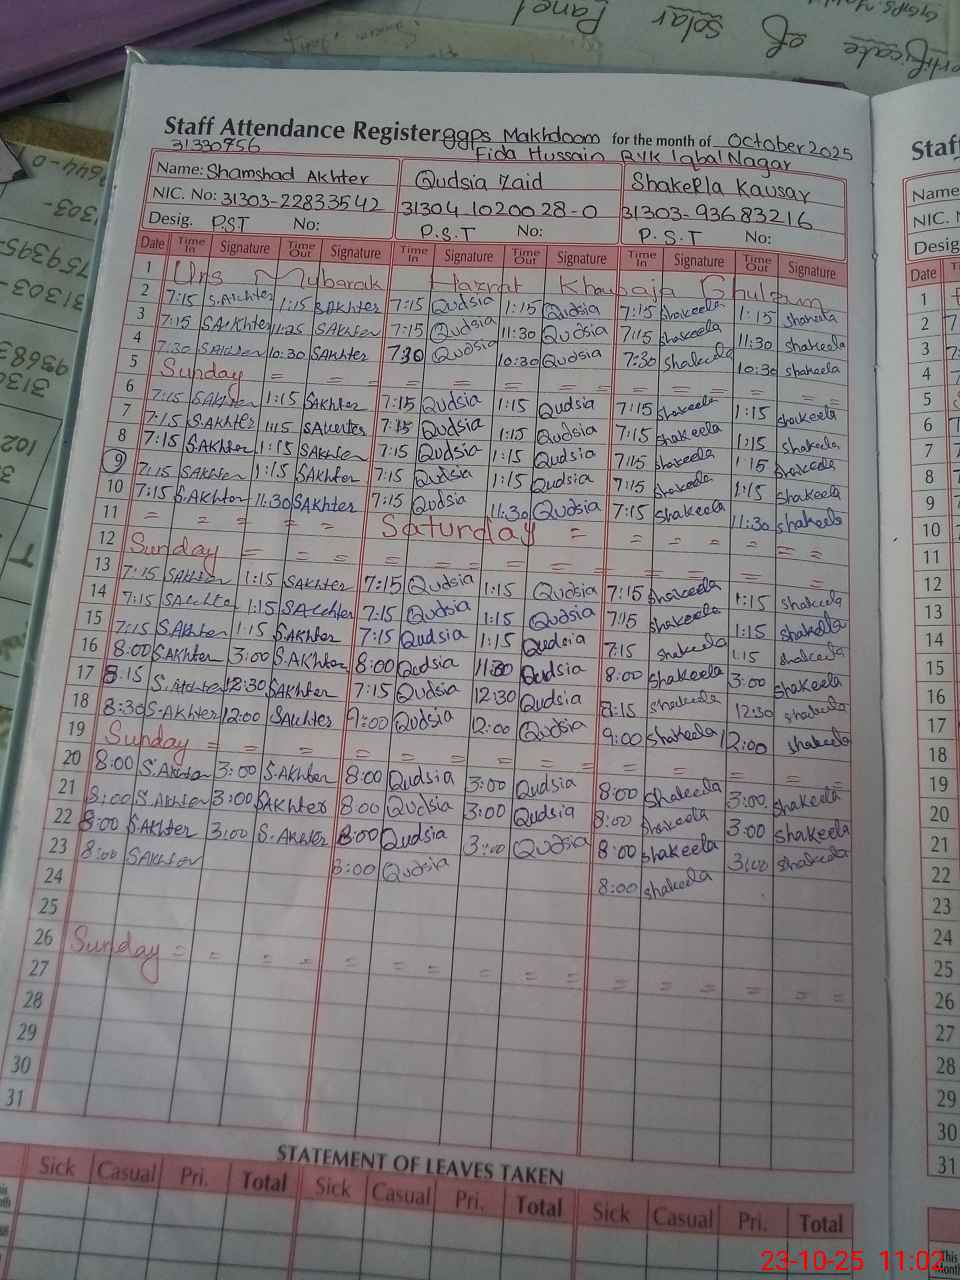 ertificate of Solar Panel
Staff Attendance Register ggps Makhdoom for the month of October 2025
31330756 Fida Hussain RYK Iqbal Nagar
Name: Shamshad Akhter Qudsia Zaid Shakeela Kausar
NIC. No: 31303-22833542 31304 1020028-0 31303-93683216
Desig. P.S.T No: P.S.T No: P.S.T No:
Date Time In Signature Time Out Signature Time In Signature Time Out Signature Time In Signature Time Out Signature
1 Urs Mubarak Hazrat Khawaja Ghulam
2 7:15 S.Akhter 1:15 SAkhter 7:15 Qudsia 1:15 Qudsia 7:15 Shakeela 1:15 shakeela
3 7:15 SAkhter SAkhter 7:15 Qudsia 11:30 Qudsia 7:15 shakeela 11:30 shakeela
4 7:30 SAkhter 10:30 SAkhter 7:30 Qudsia 10:30 Qudsia 7:30 shakeela 10:30 shakeela
5 Sunday = = = = = = = = = = =
6 7:15 SAkhter 1:15 SAkhter 7:15 Qudsia 1:15 Qudsia 7:15 shakeela 1:15 shakeela
7 7:15 S.Akhter 1:15 SAkhter 7:15 Qudsia 1:15 Qudsia 7:15 shakeela 1:15 shakeela
8 7:15 S.Akhter 1:15 SAkhter 7:15 Qudsia 1:15 Qudsia 7:15 shakeela 1:15 shakeela
9 7:15 SAkhter 1:15 SAkhter 7:15 Qudsia 1:15 Qudsia 7:15 shakeela 1:15 shakeela
10 7:15 S.Akhter 11:30 SAkhter 7:15 Qudsia 11:30 Qudsia 7:15 shakeela 11:30 shakeela
11 = = = = Saturday = = = = = =
12 Sunday = = = = = = = = = = =
13 7:15 SAkhter 1:15 SAkhter 7:15 Qudsia 1:15 Qudsia 7:15 shakeela 1:15 shakeela
14 7:15 SAkhter 1:15 SAkhter 7:15 Qudsia 1:15 Qudsia 7:15 shakeela 1:15 shakeela
15 7:15 S.Akhter 1:15 SAkhter 7:15 Qudsia 1:15 Qudsia 7:15 shakeela 1:15 shakeela
16 8:00 SAkhter 3:00 S.Akhter 8:00 Qudsia Qudsia 8:00 shakeela 3:00 shakeela
17 8:15 S.Akhter 12:30 SAkhter 7:15 Qudsia 12:30 Qudsia 8:15 shakeela 12:30 shakeela
18 8:30 S.Akhter 12:00 SAkhter 9:00 Qudsia 12:00 Qudsia 9:00 shakeela 12:00 shakeela
19 Sunday = = = = = = = = = = =
20 8:00 S.Akhter 3:00 S.Akhter 8:00 Qudsia 3:00 Qudsia 8:00 Shakeela 3:00 shakeela
21 8:00 S.Akhter 3:00 SAkhter 8:00 Qudsia 3:00 Qudsia 8:00 shakeela 3:00 shakeela
22 8:00 SAkhter 3:00 S.Akhter 8:00 Qudsia 3:00 Qudsia 8:00 shakeela 3:00 shakeela
23 8:00 SAkhter 8:00 Qudsia 8:00 shakeela
24
25
26 Sunday = = = = = = = = = = = =
27
28
29
30
31
STATEMENT OF LEAVES TAKEN
Sick Casual Pri. Total Sick Casual Pri. Total Sick Casual Pri. Total
Staf
Name
NIC.
Desig
Date
1
2
3
4
5
6
7
8
9
10
11
12
13
14
15
16
17
18
19
20
21
22
23
24
25
26
27
28
29
30
31
This Month
23-10-25 11:02